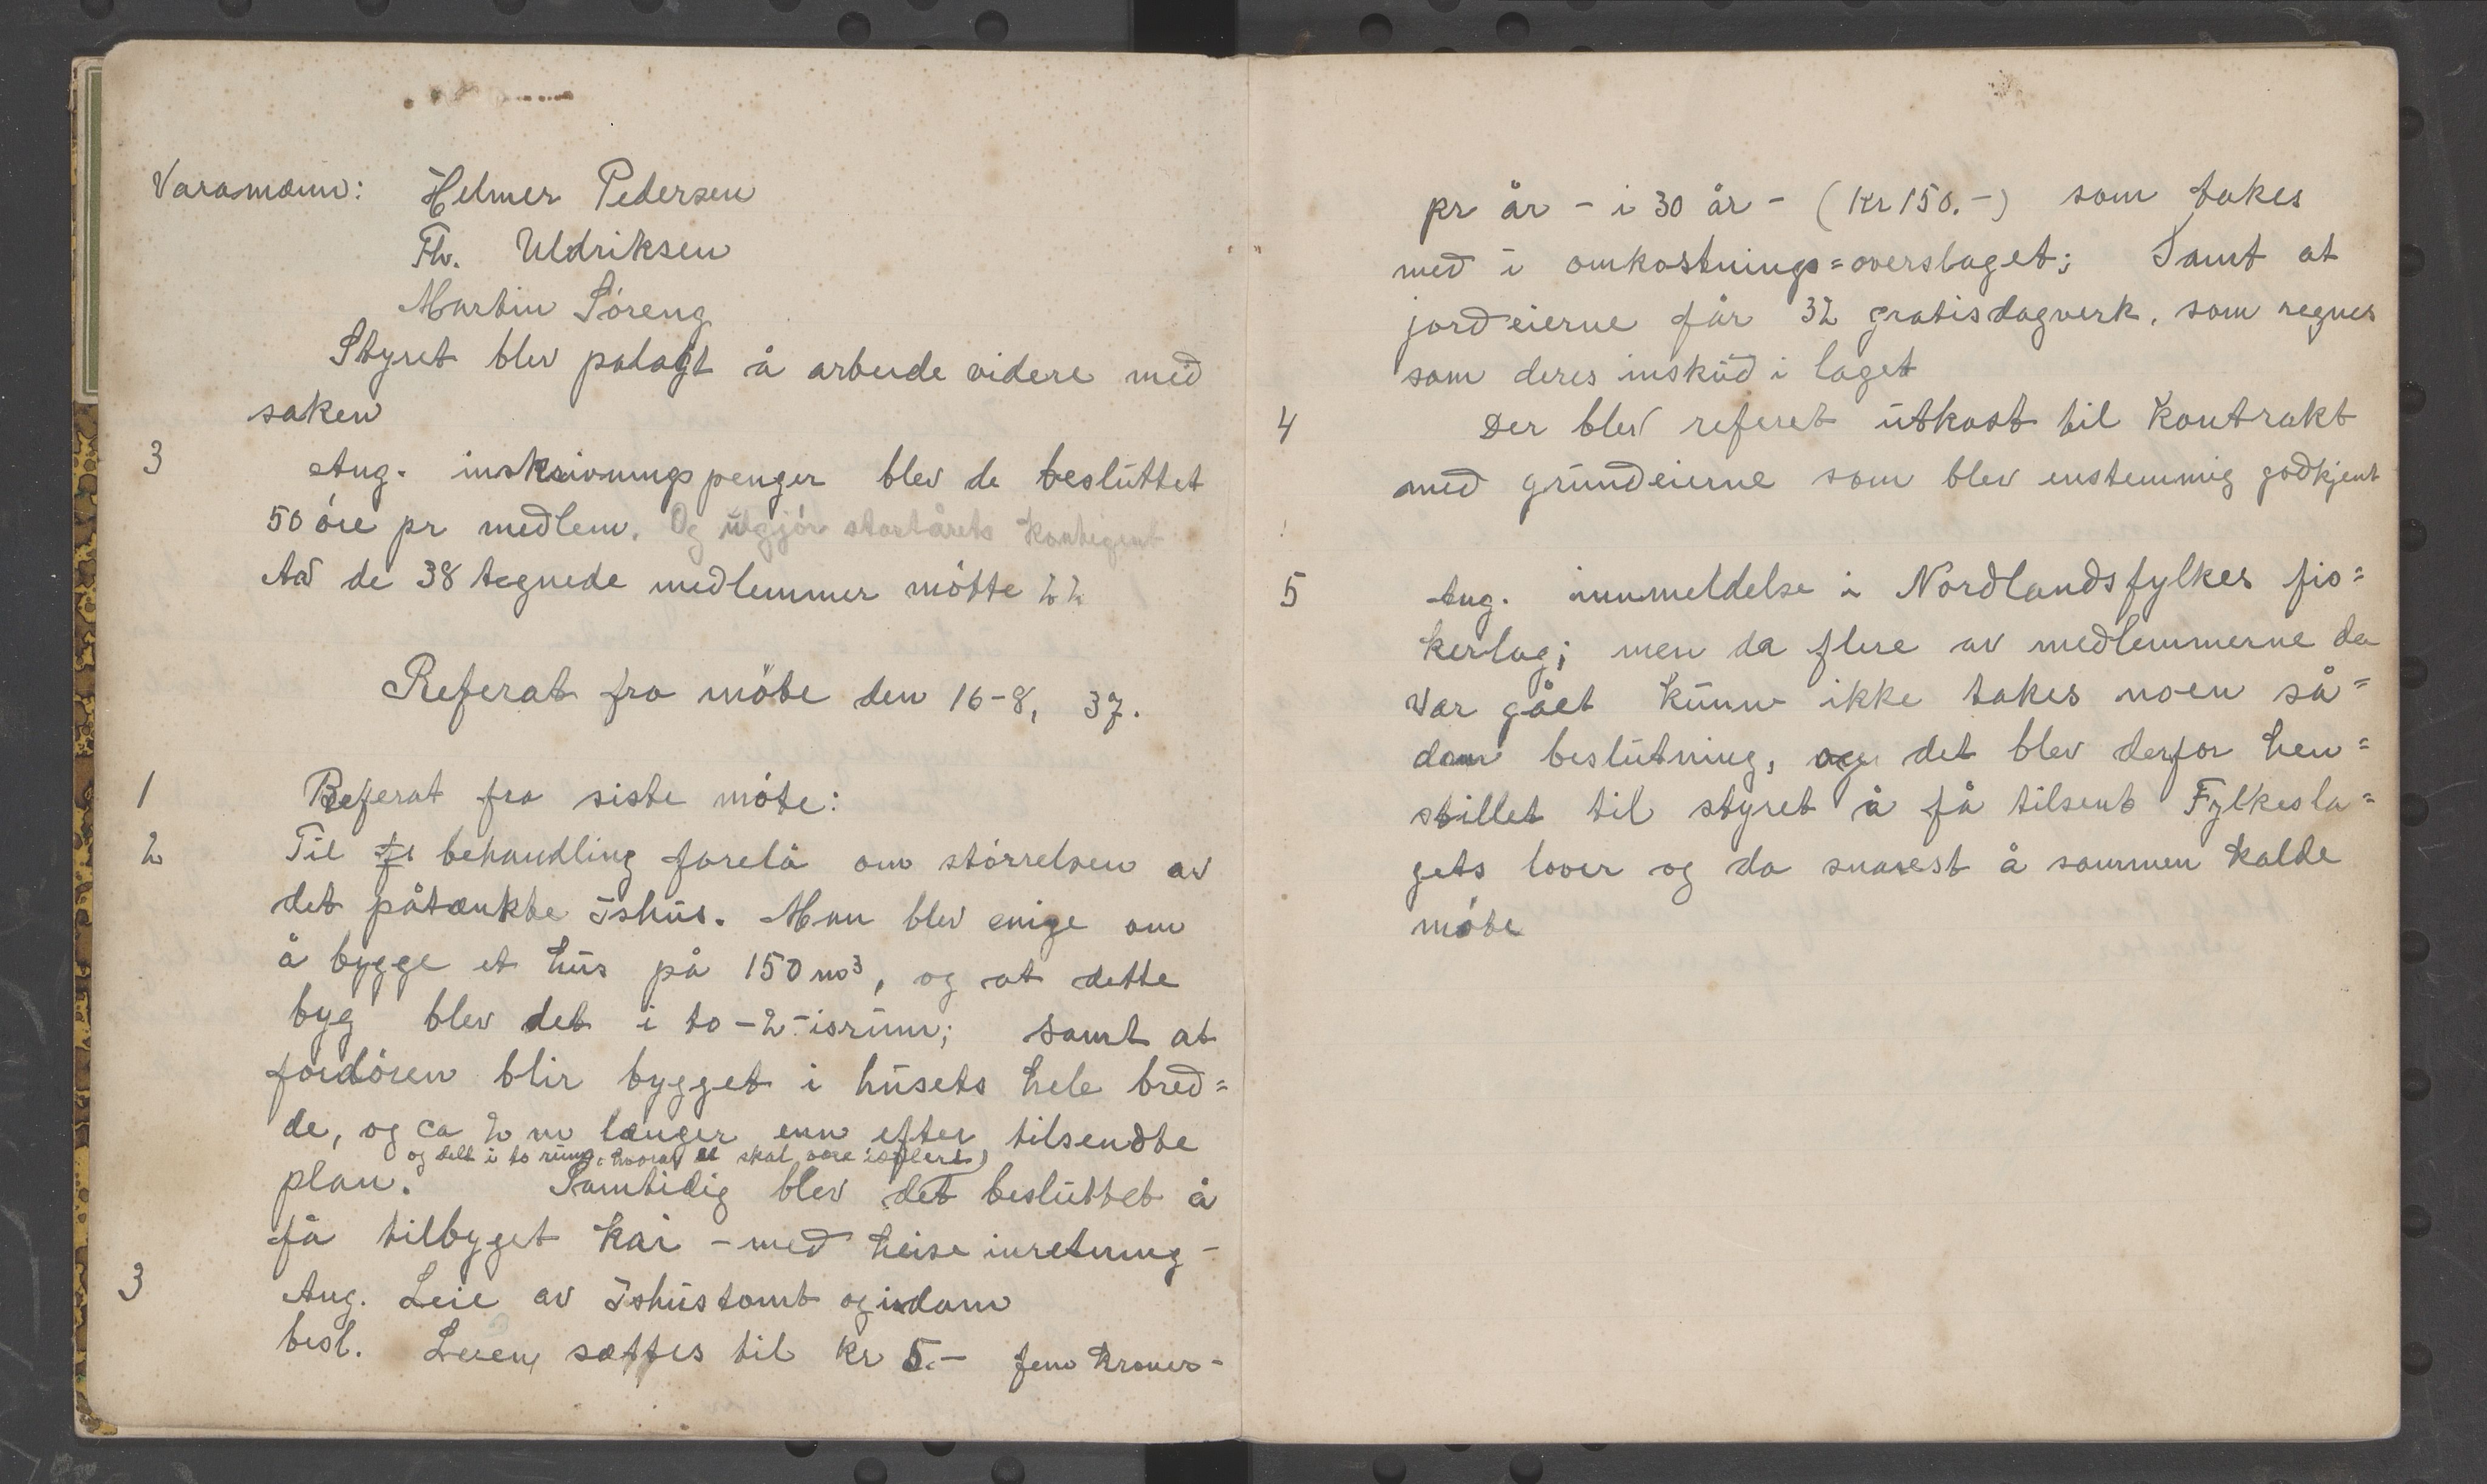 Varamænn: Helmer Pedersen
Th. Uldriksen
Martin Søreng
Styret blev palagt å arbeide videre med
saken
3 Ang. inskrivningspenger blev de besluttet
50 øre pr medlem. Og utgjør startårets Kontigent
Av de 38 tegnede medlemmer møtte 22
Referat fra møte den 16-8, 37.
1 Referat fra siste møte:
2 Til behandling forelå om størrelsen av
det påtænkte Ishus. Man blev enige om
å bygge et hus på 150 m³, og at dette
byg blev det i to -2- isrum; samt at
fordøren blir bygget i husets hele bred=
de, og ca 2 m længer enn efter tilsendte
og delt i to rum, hvorav et skal være isolert)
plan. Samtidig blev det besluttet å
få tilbyget kai - med heise inretning -
3 Ang. Leie av Ishustomt og isdam
besl. Leien sættes til kr 5.- fem kroner -
pr år - i 30 år - (Kr 150.-) som takes
med i omkostnings=overslaget; Samt at
jordeierne får 32 gratisdagverk, som regnes
som deres inskud i laget
4 Der blev referet utkast til Kontrakt
med grundeierne som blev enstemmig godkjent
5 Ang. innmeldelse i Nordlandsfylkes fis=
kerlag; men da flere av medlemmerne da
var gået kunne ikke takes noen så=
dan beslutning, og det blev derfor hen=
stillet til styret å få tilsent Fylkesla=
gets lover og da snarest å sammen kalde
møte